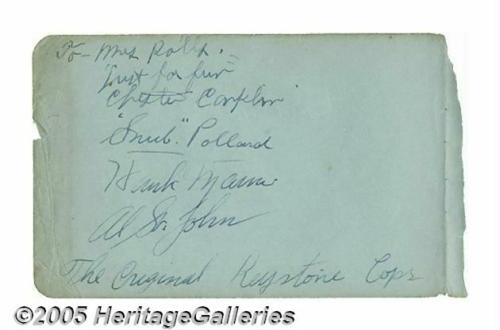 To - Mrs Rolls -
"Just for fun"
Chester Conklin
"Snub" Pollard
Hank Mann
Al St. John
The Original Keystone Cops
©2005 HeritageGalleries